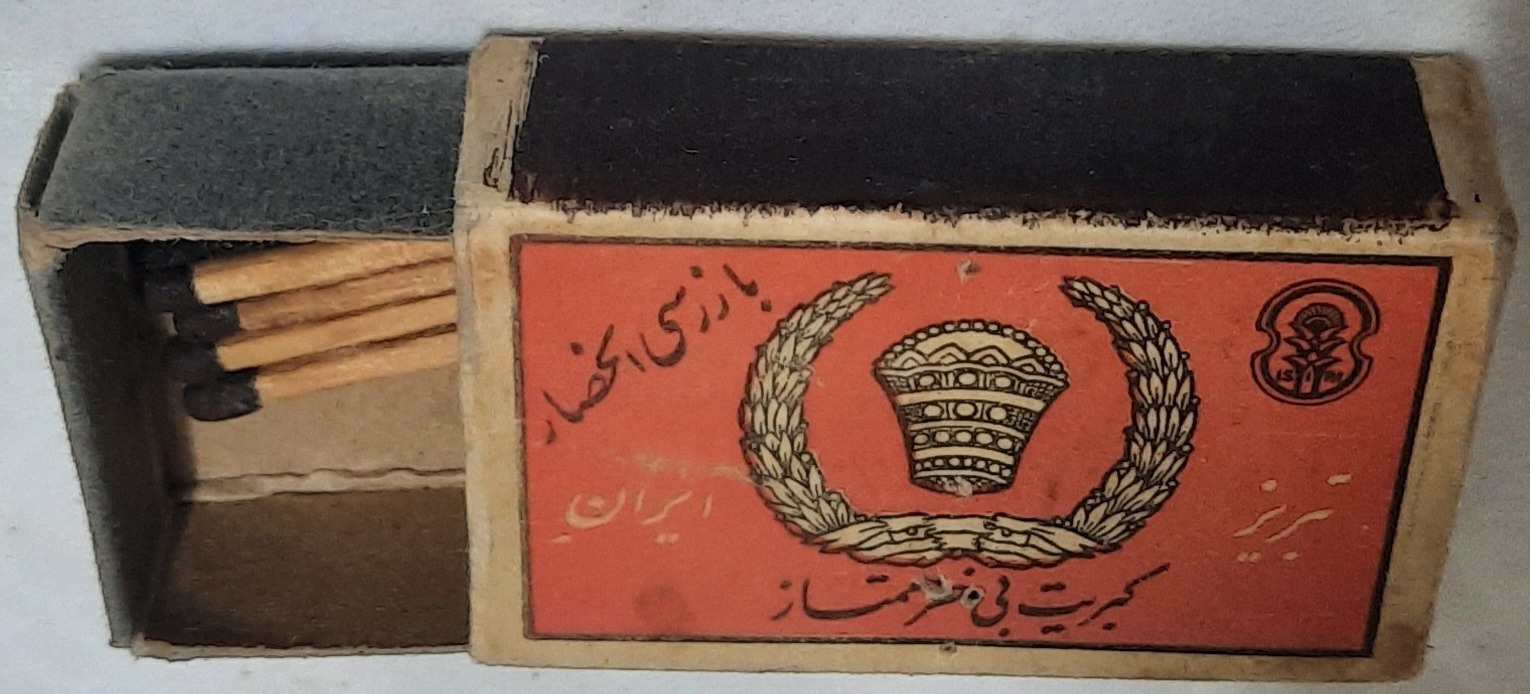 بازرسی انحصار
تبریز
ایران
کبریت بی خطر ممتاز